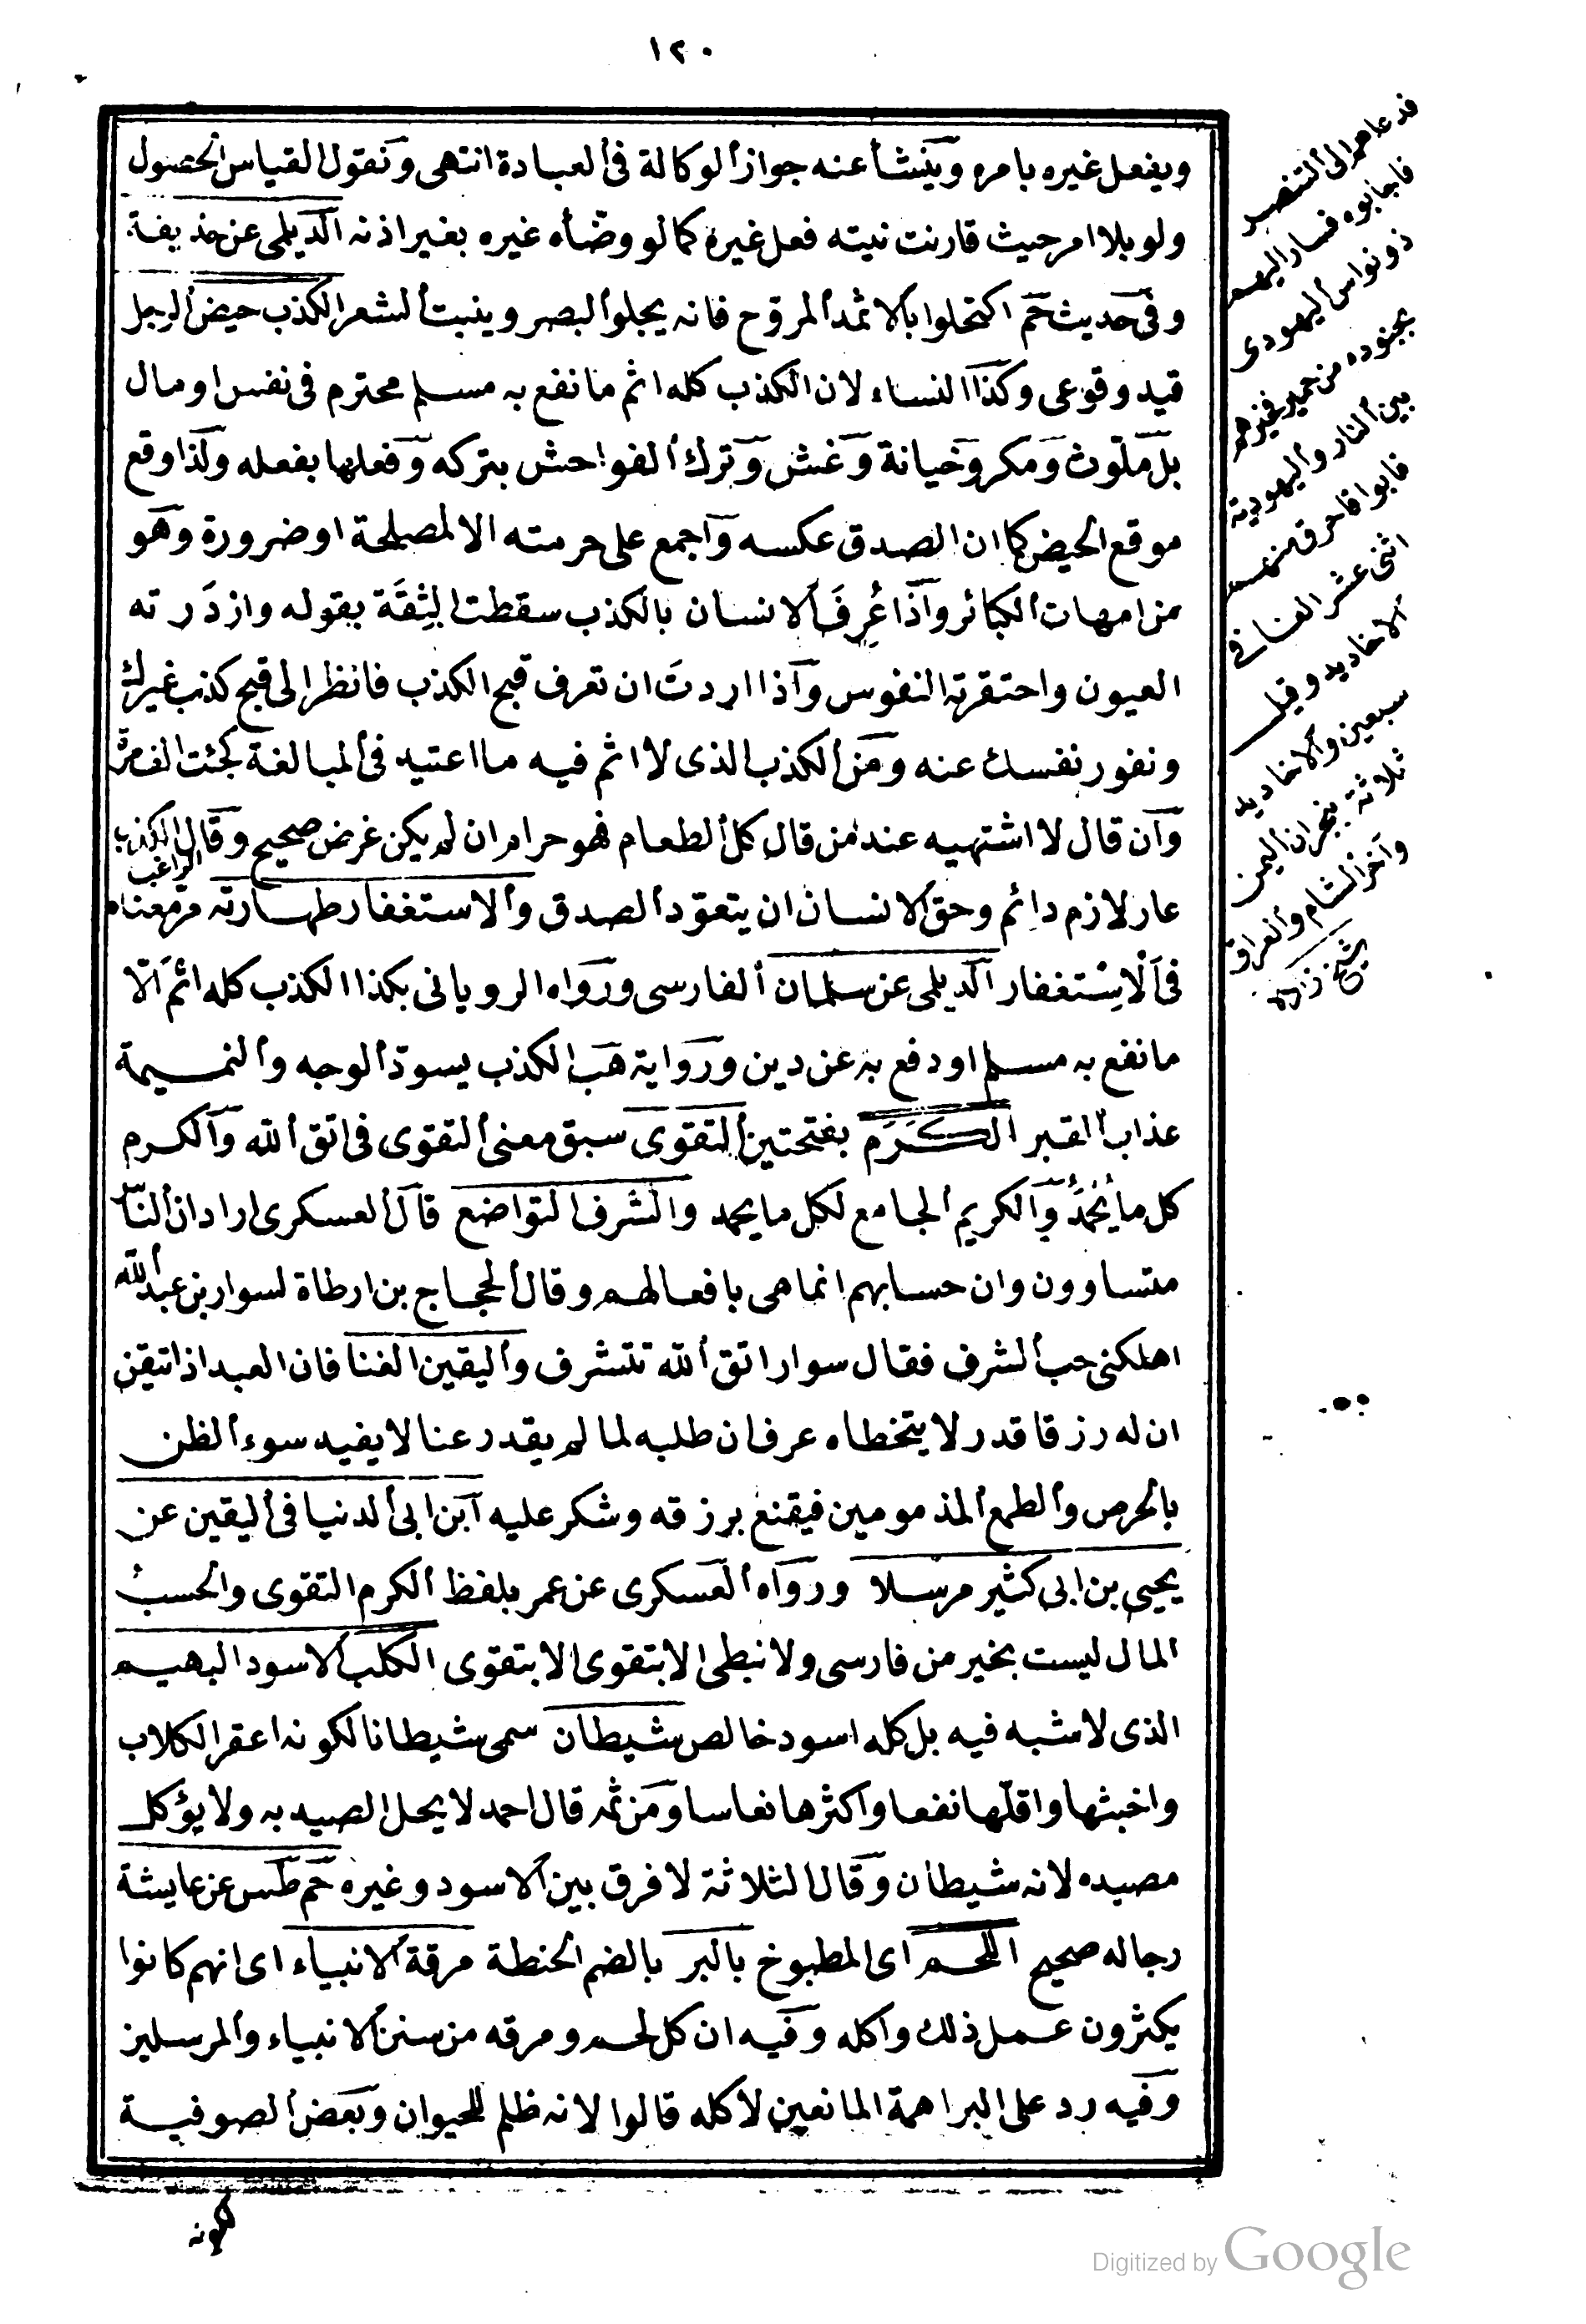 ١٢٠
ويفعل غيره بامره وينشأ عنه جواز الوكالة فى العبادة انتهى ونقول القياس الحصول
ولو بلا امر حيث قارنت نيته فعل غيره كما لو وضأه غيره بغير اذنه الديلى عن حذيفة
وفى حديث حم اكتحلوا بالاثمد المروح فانه يجلوا البصر وينبت الشعر الكذب حيض الرجل
قيد وقوعى وكذا النساء لان الكذب كله اثم ما نفع به مسلم محترم فى نفس او مال
بل ملوث ومكر وخيانة وغش وترك الفواحش بتركه وفعلها بفعله ولذا وقع
موقع الحيض كما ان الصدق عكسه واجمع على حرمته الا لمصلحة او ضرورة وهو
من امهات الكبائر واذا عُرِفَ الانسان بالكذب سقطت الثِقَة بقوله وازدَرته
العيون واحتقرته النفوس واذا اردتَ ان تعرف قبح الكذب فانظر الى قبح كذب غيرك
ونفور نفسك عنه ومن الكذب الذى لا اثم فيه ما اعتيد فى المبالغة كجئت الف مرة
وان قال لا اشتهيه عند من قال كل الطعام فهو حرام ان لم يكن غرض صحيح وقال الراغب الكذب
عار لازم دائم وحق الانسان ان يتعود الصدق والاستغفار طهارته مر معناه
فى اَلْاِسْتغفار الديلى عن سلمان الفارسى ورواه الرويانى بكذا الكذب كله اثم الّا
ما نفع به مسلم او دفع به عن دين ورواية هب الكذب يسود الوجه والنميمة
عذاب القبر الكَرَم بفتحتين التقوى سبق معنى التقوى فى اتق الله والكرم
كل ما يُحْمَدُ والكريم الجامع لكل ما يحمد والشرف التواضع قال العسكرى اراد ان الناس
متساوون وان حسابهم انما هى بافعالهم وقال الحجاج بن ارطاة لسوار بن عبد الله
اهلكنى حب الشرف فقال سوار اتق الله تتشرف واليقين الغنا فان العبد اذا تيقن
ان له رزقا قدر لا يتخطاه عرف ان طلبه لما لم يقدر عنا لا يفيد سوء الظن
بالحرص والطمع المذمومين فيقنع برزقه وشكر عليه ابن ابى الدنيا فى اليقين عن
يحيى بن ابى كثير مرسلا ورواه العسكرى عن عمر بلفظ الكرم التقوى والحسب
المال ليست بخير من فارسى ولا نبطى الا بتقوى الا بتقوى الكلب الاسود البهيم
الذى لا شبه فيه بل كله اسود خالص شيطان سمى شيطانا لكونه اعقر الكلاب
واخبثها واقلّها نفعا واكثرها نعاسا ومن ثمه قال احمد لا يحل الصيد به ولا يؤكل
مصيده لانه شيطان وقال الثلاثة لا فرق بين الاسود وغيره حم طس عن عايشة
رجاله صحيح اللحم اى المطبوخ بالبر بالضم الحنطة مرقة الانبياء اى انهم كانوا
يكثرون عمل ذلك واكله وفيه ان كل لحم ومرقه من سنن الانبياء والمرسلين
وفيه رد على البراهمة المانعين لاكله قالوا لانه ظلم للحيوان وبعض الصوفية
فدعاهم الى التنصر
فاجابوه فسار اليهم
ذو نواس اليهودى
بجنوده من حمير فخيرهم
بين النار واليهودية
فابوا فاحرق منهم
اثنى عشر الفا فى
الاخاديد وقيل
سبعين والاخاديد
ثلاثة بنجران اليمن
وآخر الشام والعراق
شيخ زاده
Digitized by Google